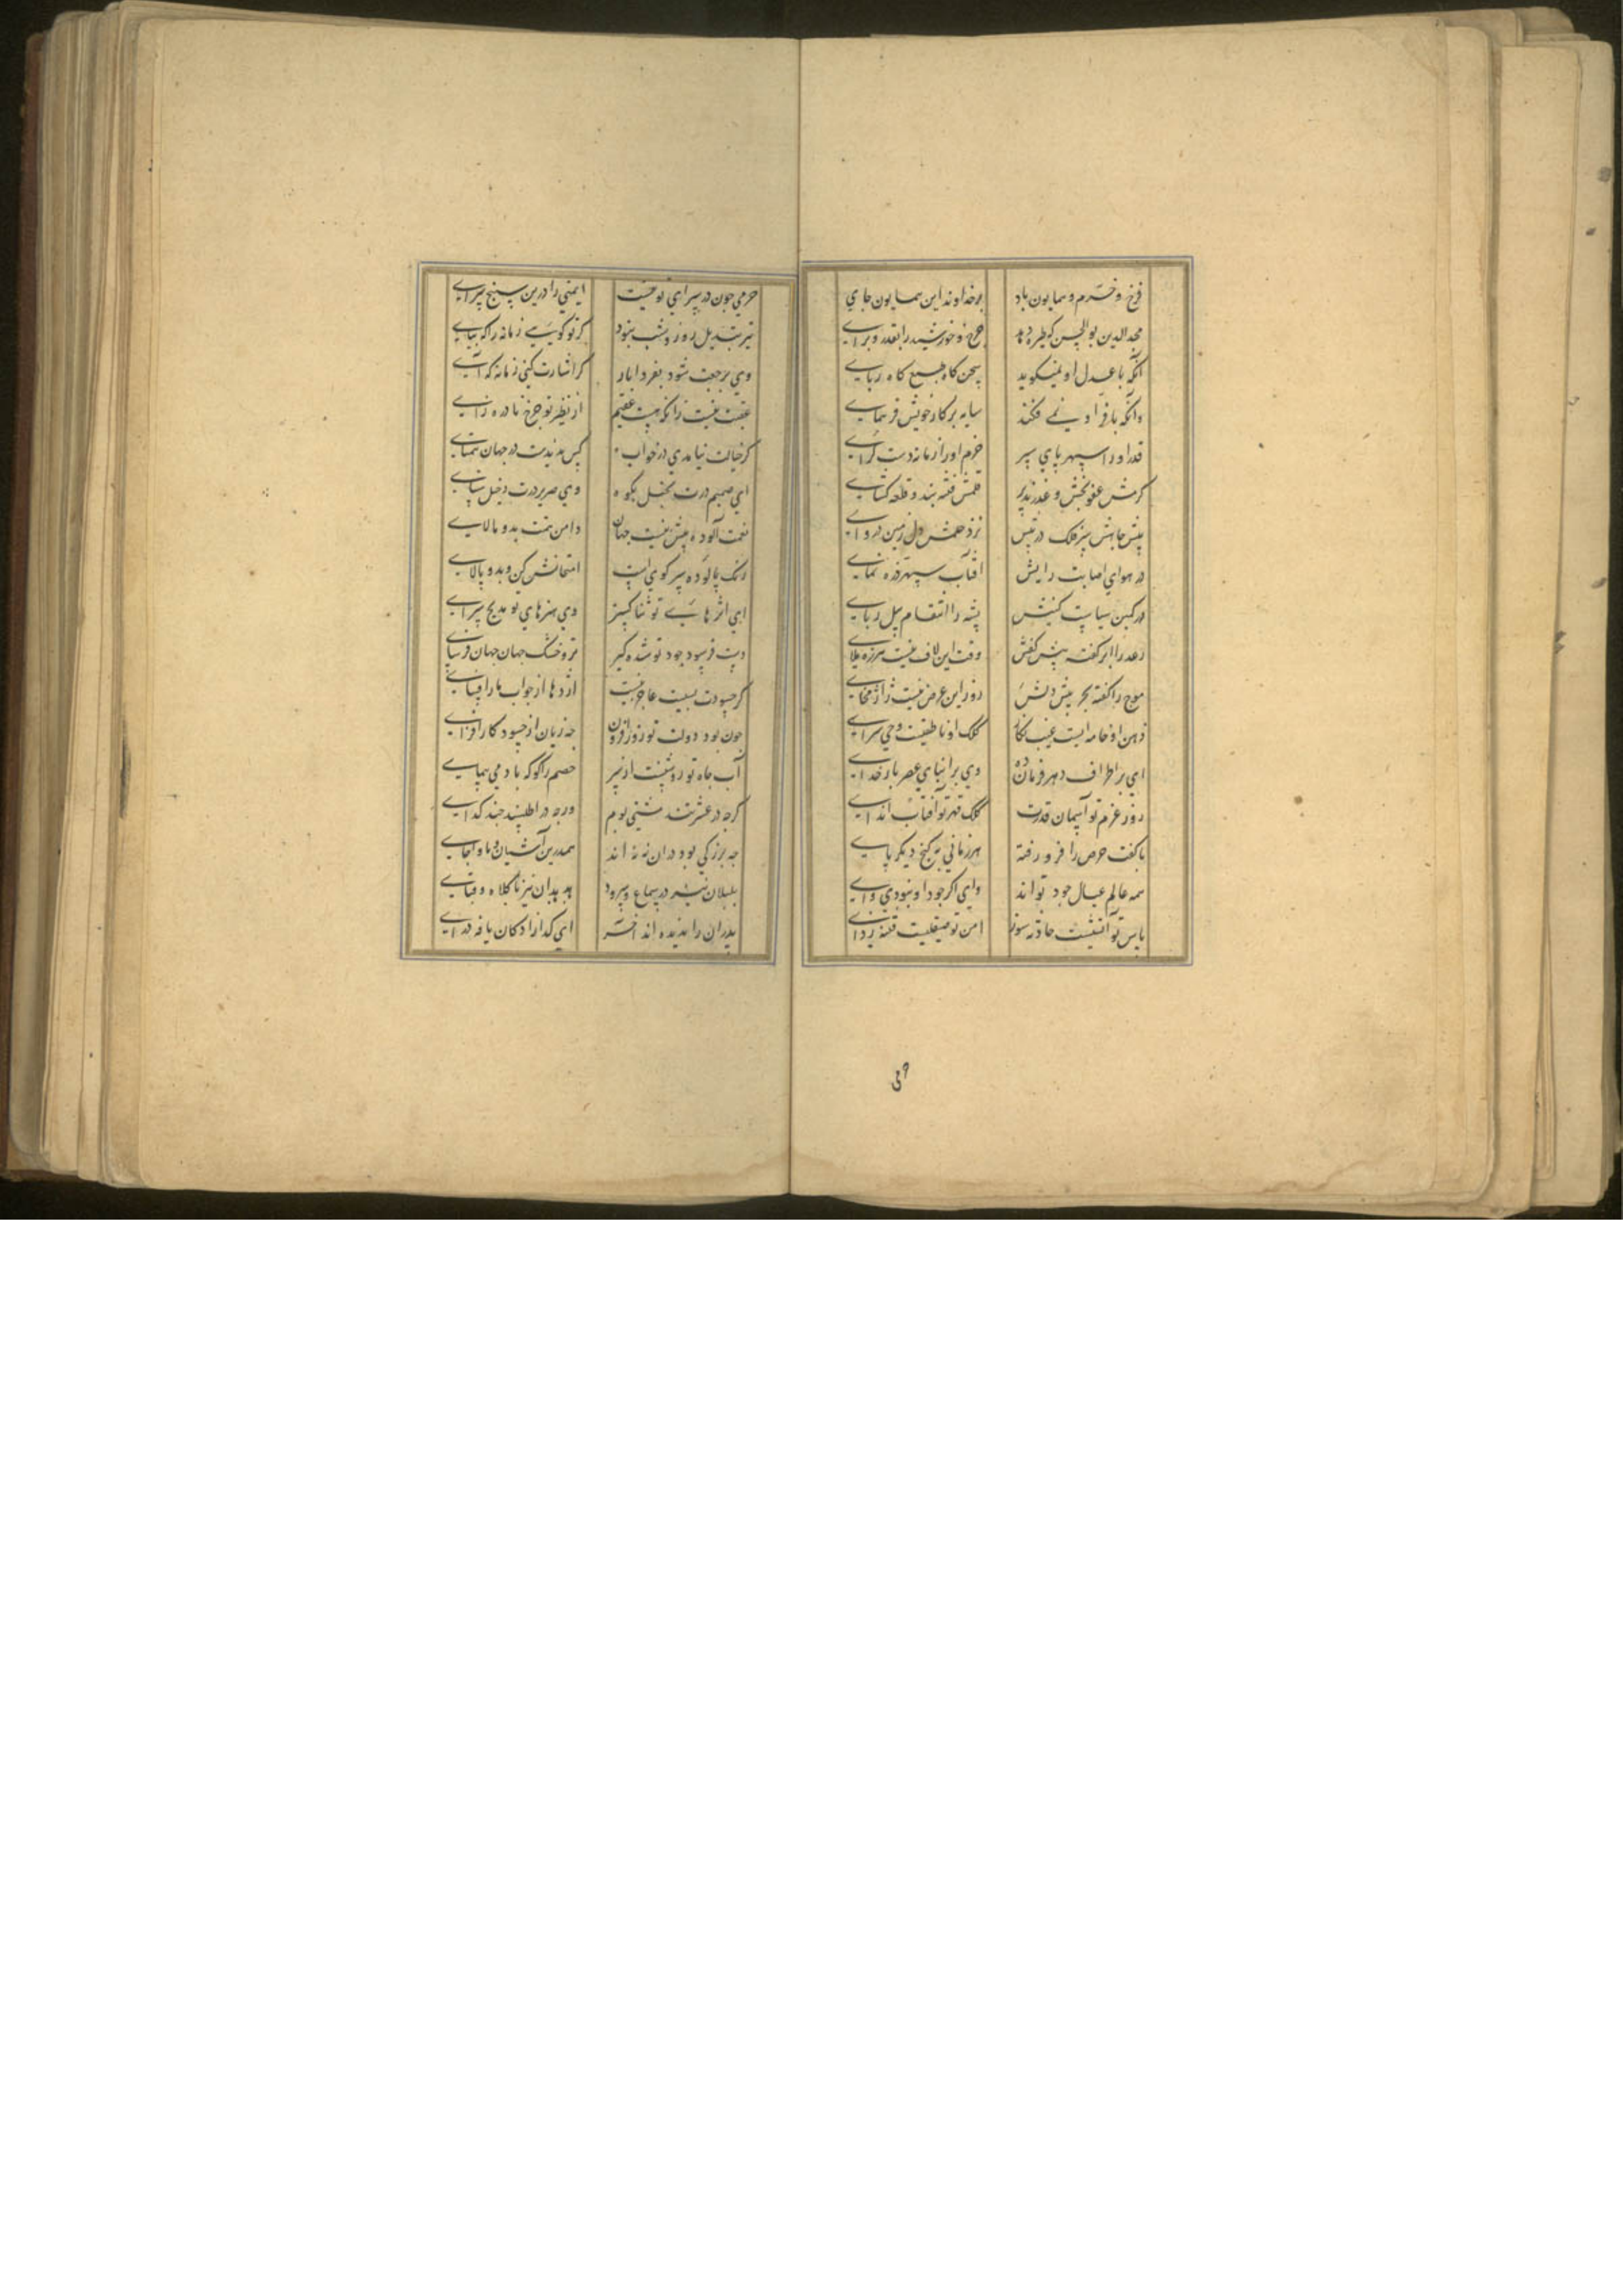 فرخ و خرم و همایون باد بر خداوند این همایون جای
مجد الدین بوالحسن که طیره دهد چرخ و خورشید را بقدر و برای
آنکه با عدل او نمیکوید سخن کاه طبع کاه ربای
وانکه با فر او نمی فکند سایه بر کار خویش فر همای
قدر او را سپهر پای سپر حزم او را زمانه دست کرای
کرمش عفو بخش و عذر پذیر قلمش فتنه بند و قلعه کشای
پیش جاهش سر فلک در پیش نزد حلمش دل زمین دروای
در هوای اصابت رایش آفتاب سپهر ذره نمای
در کمین سیاست کینش پشه را انتقام پیل ربای
رعد را ابر کفته پیش کفش وقت این لاف نیست هرزه ملای
موج را کفته بحر پیش دلش روز این عرض نیست ژاژ مخای
ذهن او خامه ایست غیب نکار کلک او ناطقیست وحی سرای
ای بر اطراف دهر فرمان ده وی بر ابنای عصر بار خدای
روز عزم تو آسمان قدرت کلک قهر تو آفتاب اندای
با کفت حرص را فرو رفته هر زمانی به کنج دیکر پای
همه عالم عیال جود تو اند وای اکر جود او نبودی وای
باس تو آتشیست حادثه سوز امن تو صیقلیست فتنه زدای
می
خرمی چون در سرای تو نیست ایمنی را درین سپنج سرای
نیز تبدیل روز و شب نبود کر تو کویی زمانه را که بپای
وی برجعت شود بفردا باز کر اشارت کنی زمانه که آی
عقبت نیست زانکه هست عقیم از نظیر تو چرخ نادره زای
کر خیالت نیامدی در خواب کس ندیدت در جهان همتای
ای صمیم درت بخیل بکوه وی صریر درت دخیل ستای
نعمت آلوده بیش نیست جهان دامن همت بدو مالای
رنک پالوده سر کوی است امتحانش کن و بدو پالای
ای اثرهای تو ثنا کستر وی هنرهای تو مدیح سرای
دست فرسود جود تو شده کیر تر و خشک جهان جهان فرسای
کر حسودت بسیست عاجز نیست اژدها از جواب مار افسای
چون بود دولت تو روز افزون چه زیان از حسود کار افزای
آب جاه تو روشنست از سر خصم را کو که باد می پیمای
کرچه در عشرتند مشتی بوم ورچه در اطلسند چند کدای
چه بزرکی بود دران نه نه اند همدرین آشیان و ماوا جای
بلبلان نیز در سماع و سرود هدهدان نیز با کلاه و قبای
پدران را ندیده اند آخر این کدا زادکان یافه درای